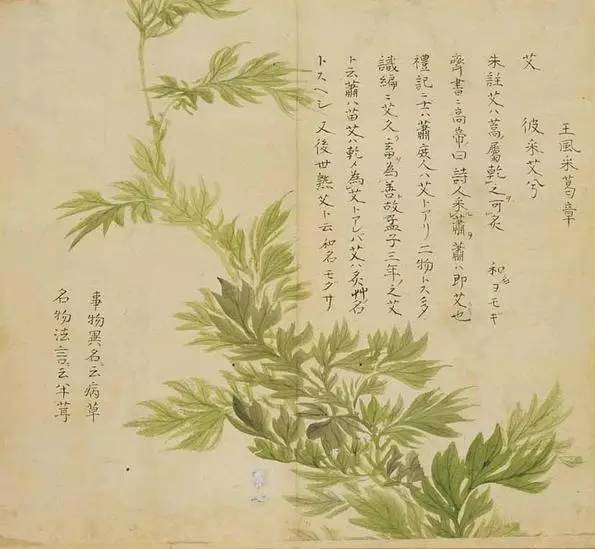 王風采葛章
艾　彼采艾兮
朱註艾ハ蒿屬乾之可灸　和名ヨモギ
齊書ニ高帝曰詩人采蕭蕭ハ即艾也
禮記ニ士ハ蕭庶人ハ艾トアリ二物トス多
識編ニ艾久畜為善故孟子三年之艾
ト云蕭ハ苗艾ハ乾メ為艾トアレバ艾ハ灸艸名
トスヘシ又後世熟艾ト云和名モグサ
事物異名ニ云病草
名物法言ニ云半茸